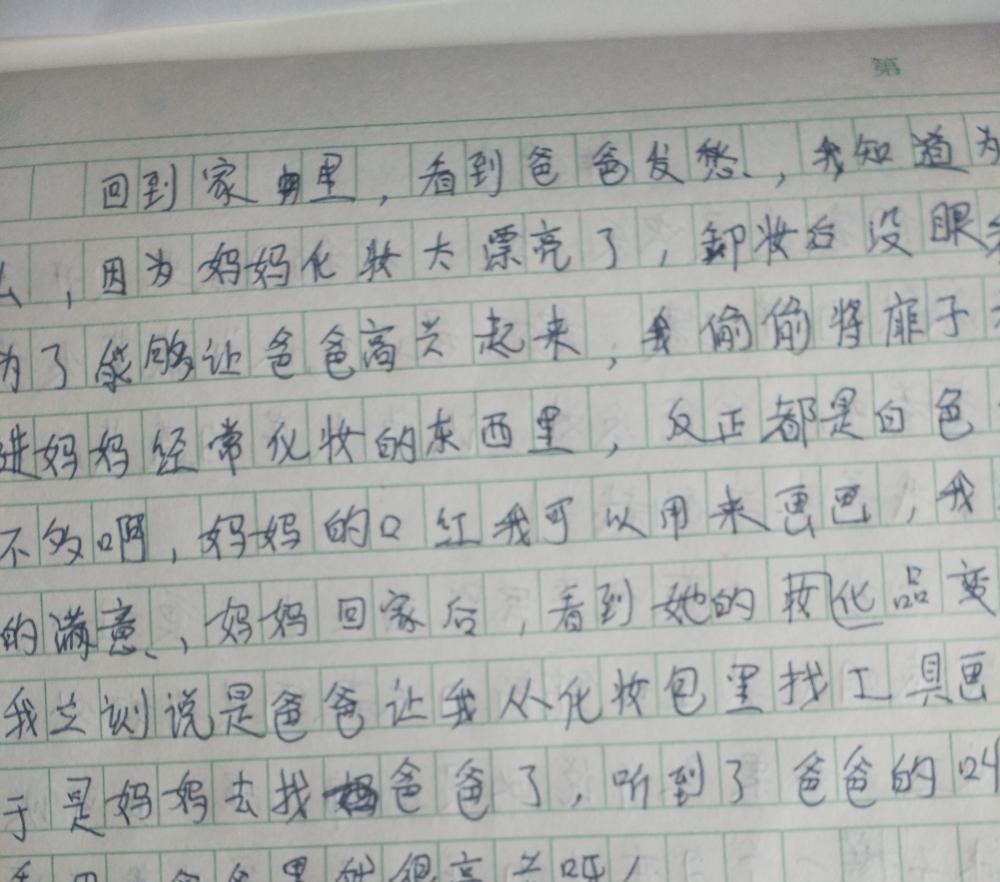 第
回到家里，看到爸爸发愁，我知道为
么，因为妈妈化妆太漂亮了，卸妆后没眼
为了能够让爸爸高兴起来，我偷偷将痱子
进妈妈经常化妆的东西里，反正都是白色
不多啊，妈妈的口红我可以用来画画，我
的满意，妈妈回家后，看到她的妆化品变
我立刻说是爸爸让我从化妆包里找工具画
于是妈妈去找爸爸了，听到了爸爸的叫